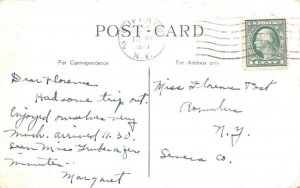 POST CARD
N.Y.
For Correspondence
For Address only
U.S. POSTAGE
1 CENT 1
Dear Florence
Had some trip out.
Enjoyed ourselves very
much. arrived 11.30.
Seen Miss
minute.
Margaret
Miss Florence Post
Romulus
N.Y.
Seneca Co.